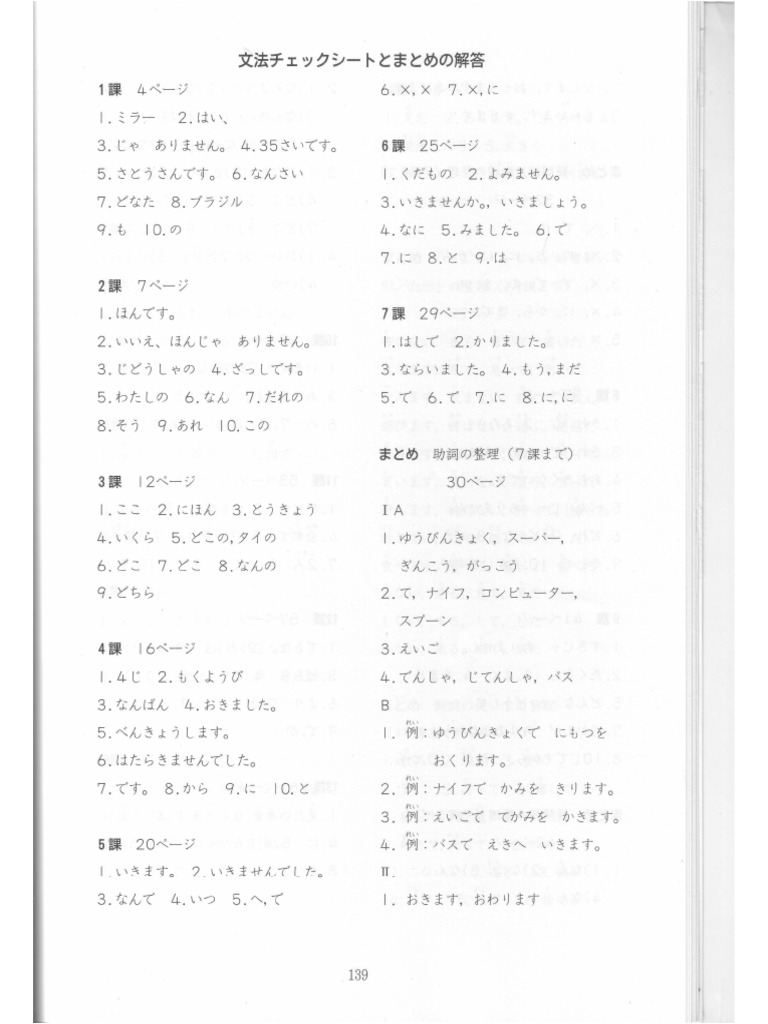 文法チェックシートとまとめの解答
1課 4ページ
1.ミラー 2.はい、
3.じゃ ありません。 4.35さいです。
5.さとうさんです。 6.なんさい
7.どなた 8.ブラジル
9.も 10.の
2課 7ページ
1.ほんです。
2.いいえ、ほんじゃ ありません。
3.じどうしゃの 4.ざっしです。
5.わたしの 6.なん 7.だれの
8.そう 9.あれ 10.この
3課 12ページ
1.ここ 2.にほん 3.とうきょう
4.いくら 5.どこの,タイの
6.どこ 7.どこ 8.なんの
9.どちら
4課 16ページ
1.4じ 2.もくようび
3.なんばん 4.おきました。
5.べんきょうします。
6.はたらきませんでした。
7.です。 8.から 9.に 10.と
5課 20ページ
1.いきます。 2.いきませんでした。
3.なんで 4.いつ 5.へ,で
6.×,× 7.×,に
6課 25ページ
1.くだもの 2.よみません。
3.いきませんか。, いきましょう。
4.なに 5.みました。 6.で
7.に 8.と 9.は
7課 29ページ
1.はして 2.かりました。
3.ならいました。 4.もう,まだ
5.で 6.で 7.に 8.に,に
まとめ 助詞の整理(7課まで)
30ページ
ⅠA
1.ゆうびんきょく, スーパー,
ぎんこう, がっこう
2.て, ナイフ, コンピューター,
スプーン
3.えいご
4.でんしゃ, じてんしゃ, バス
B
1.例:ゆうびんきょくで にもつを
おくります。
2.例:ナイフで かみを きります。
3.例:えいごで てがみを かきます。
4.例:バスで えきへ いきます。
Ⅱ.
1.おきます, おわります
139